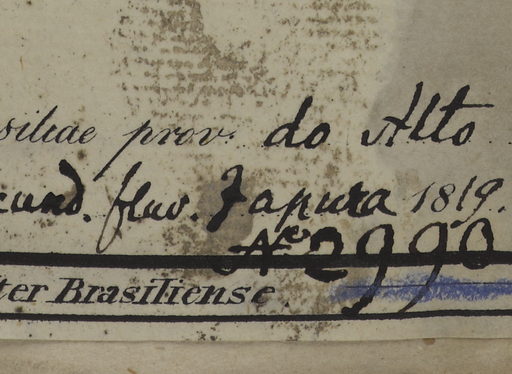 siliae prov. do Alto
cund. fluv. Japura 1819.
No 2990
ter Brasiliense.